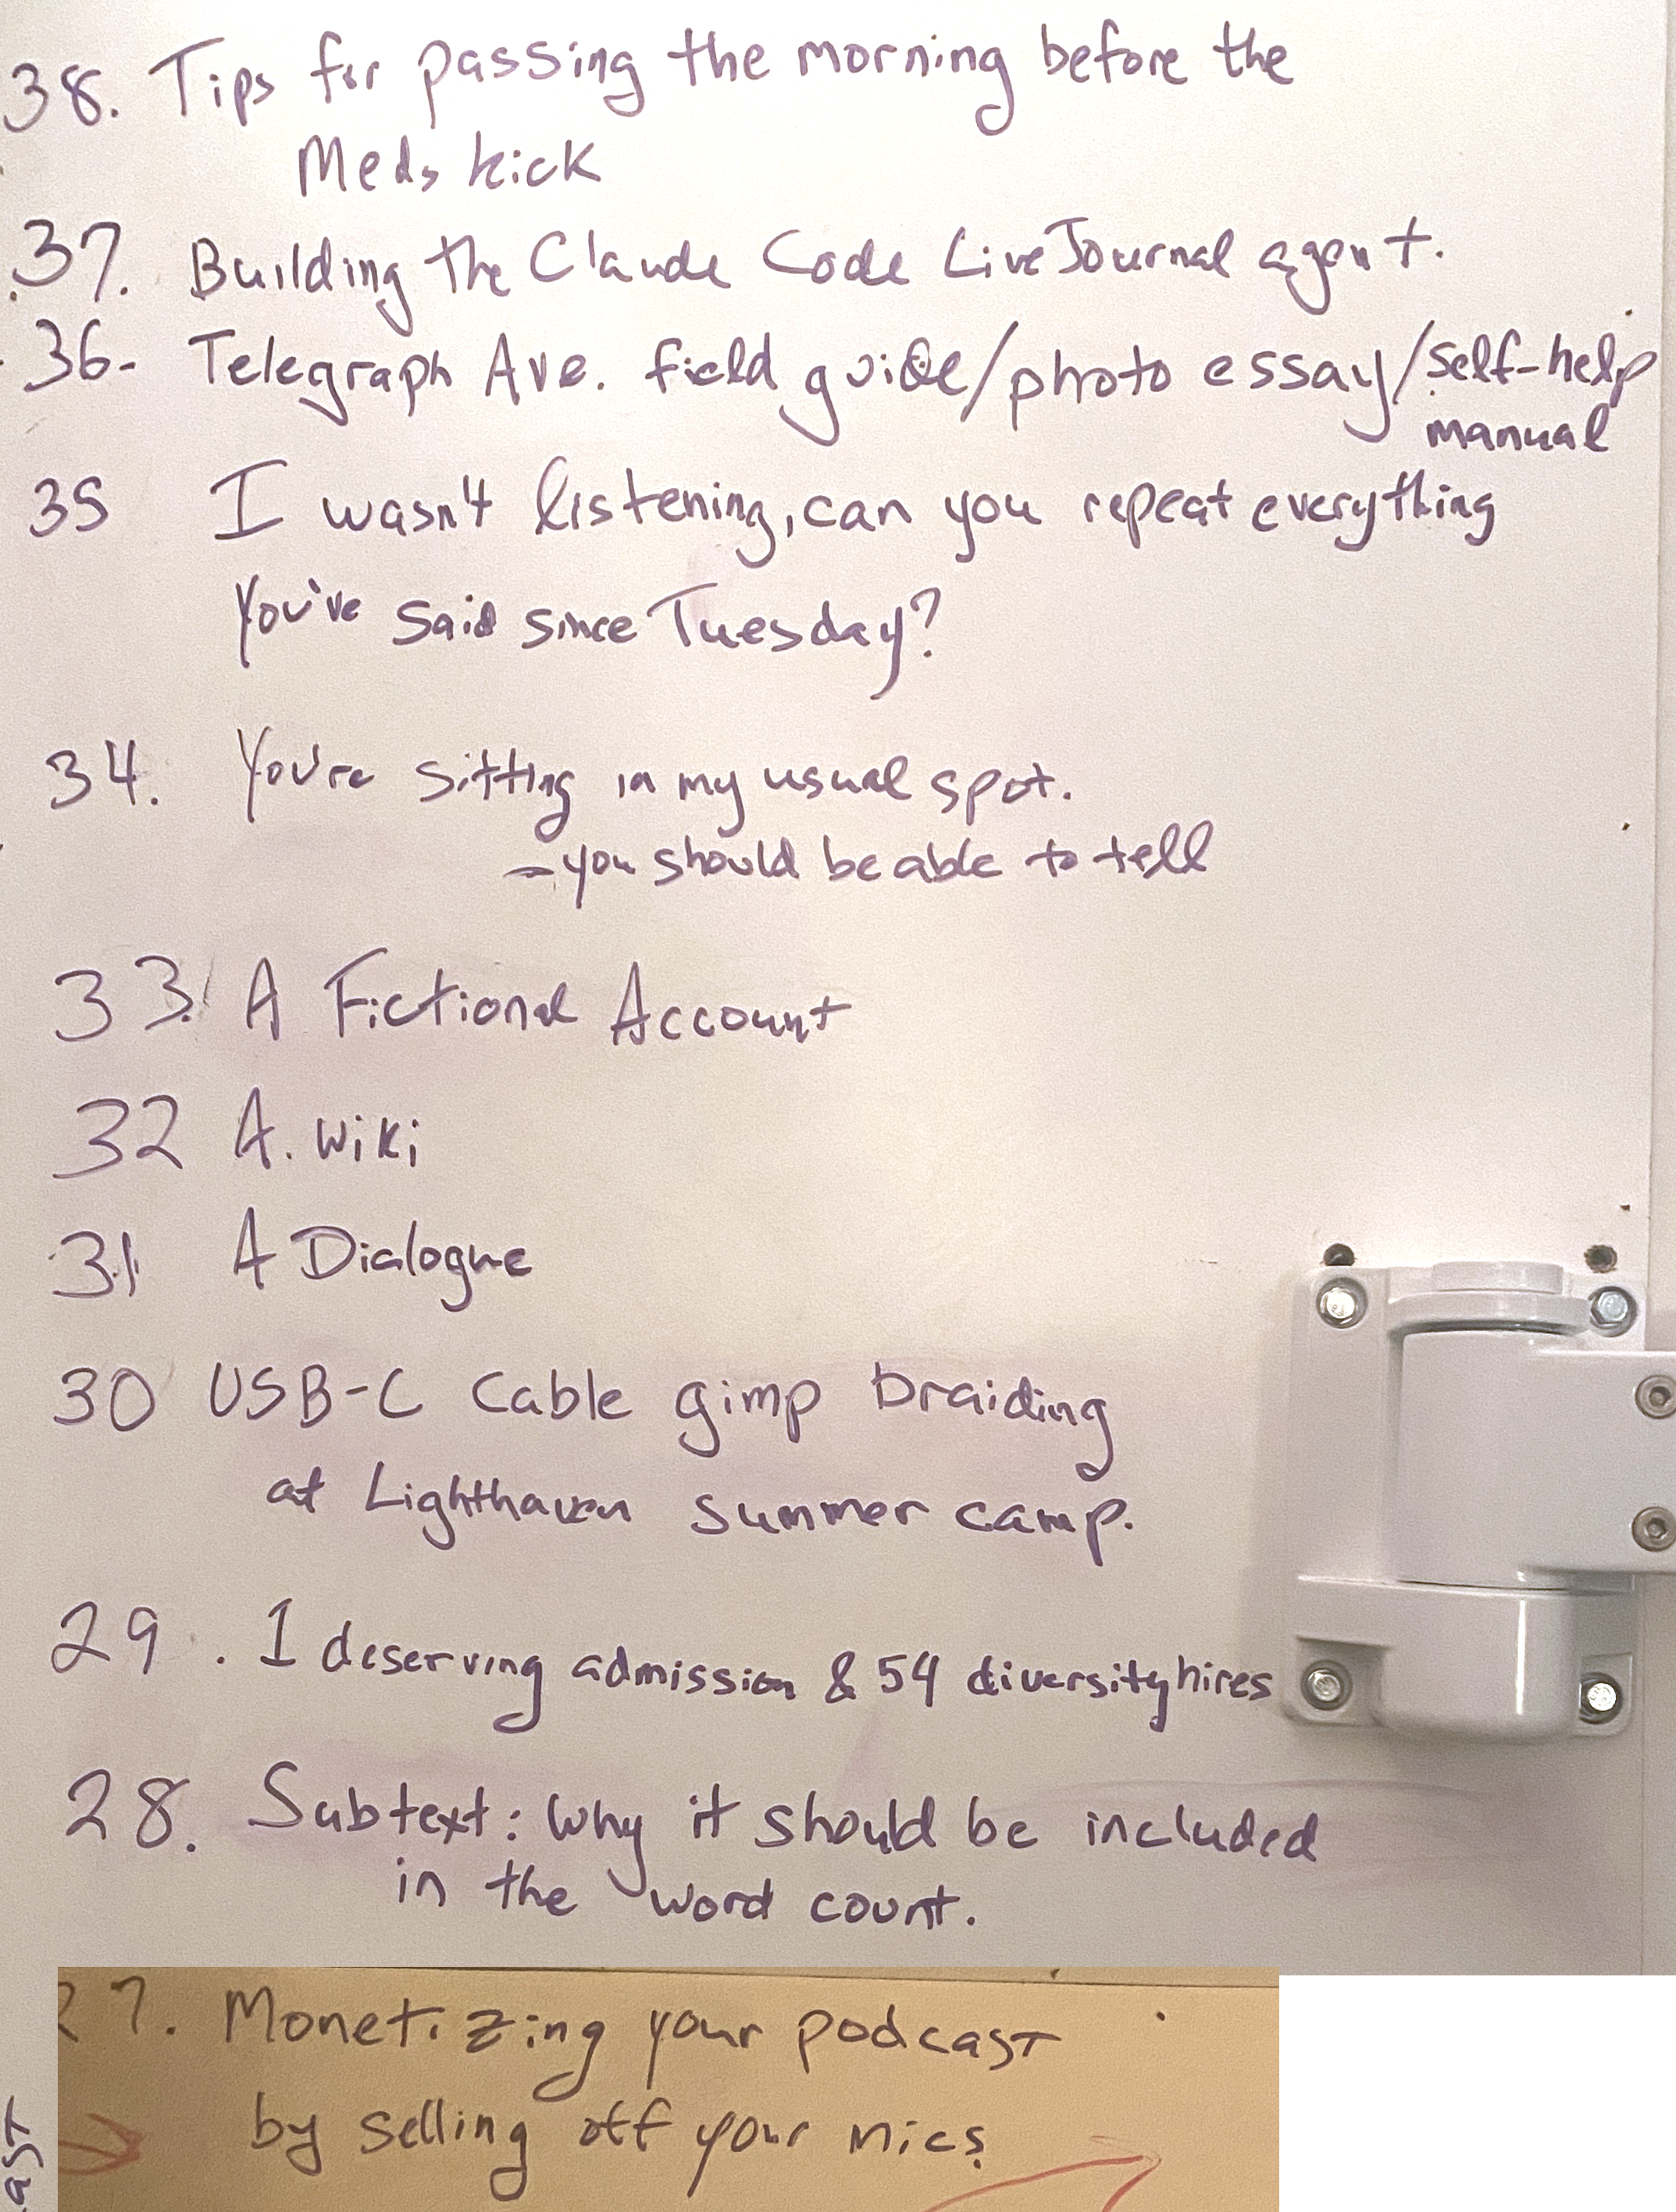 38. Tips for passing the morning before the
Meds kick
37. Building the Claude Code LiveJournal agent.
36- Telegraph Ave. field guide/photo essay/self-help
manual
35 I wasn't listening, can you repeat everything
You've said since Tuesday?
34. You're sitting in my usual spot.
- you should be able to tell
33. A Fictional Account
32 A. Wiki
31 A Dialogue
30 USB-C Cable gimp braiding
at Lighthaven summer camp.
29. 1 deserving admission & 54 diversity hires
28. Subtext: Why it should be included
in the word count.
27. Monetizing your podcast
by selling off your mics.